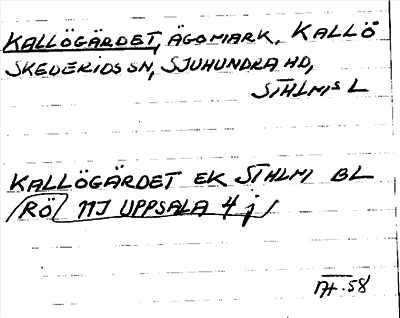 KALLÖGÄRDET, ÄGOMARK, KALLÖ
SKEDERIDS SN, SJUHUNDRA HD,
STHLMS L
KALLÖGÄRDET EK STHLM BL
RÖ 11J UPPSALA 4 j
58